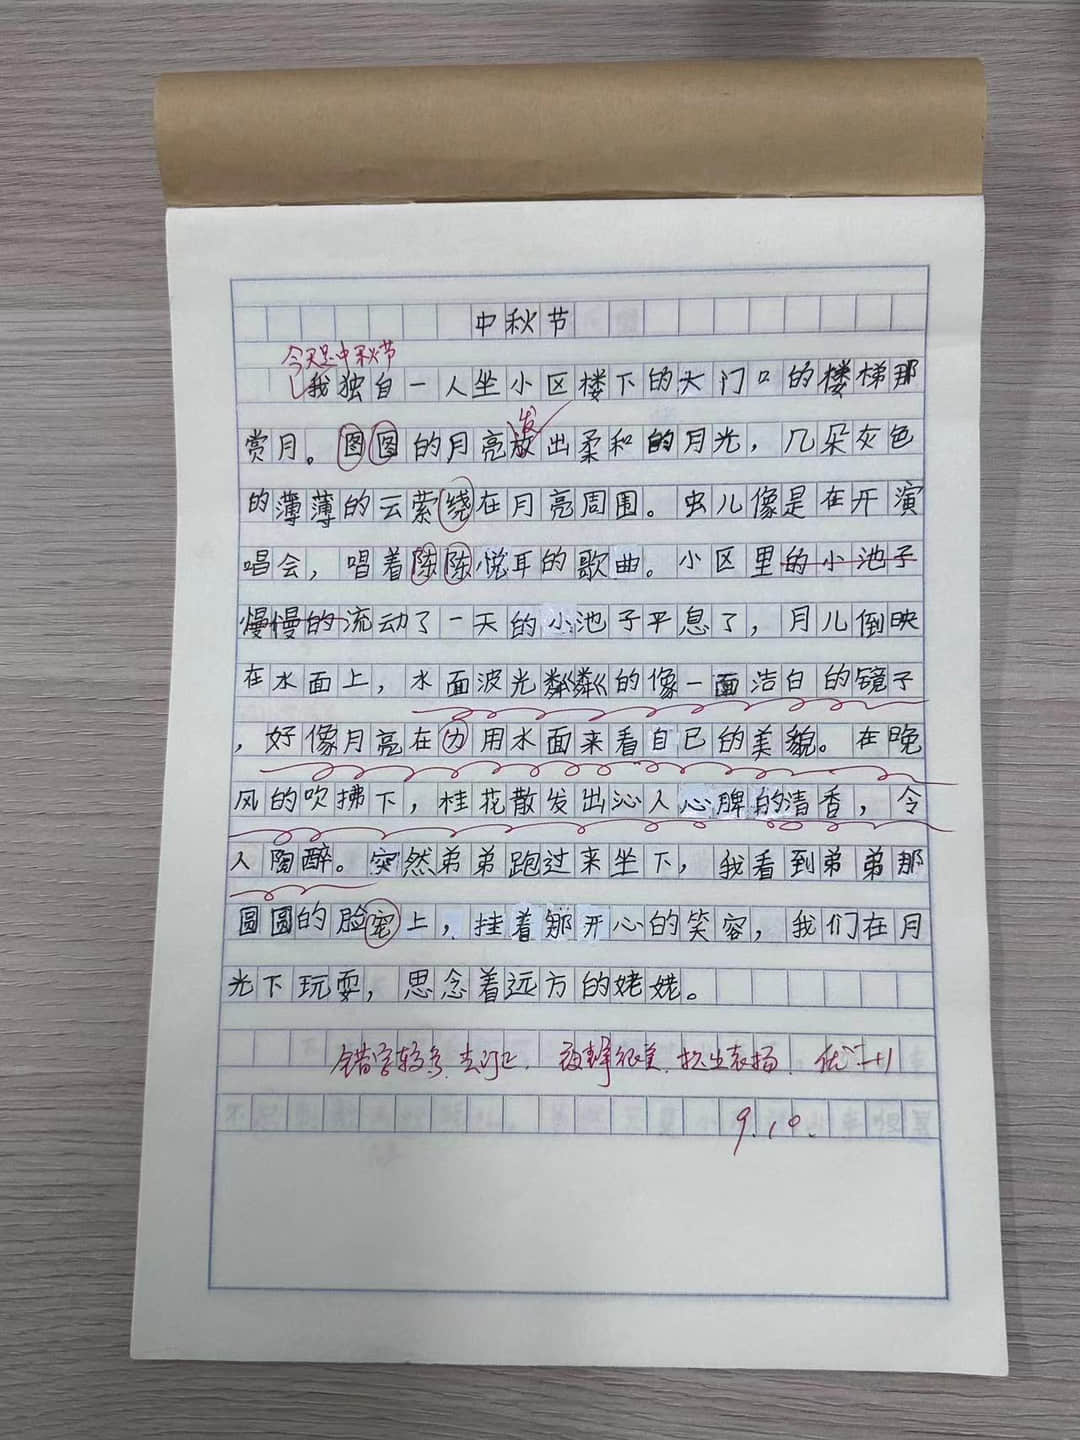 中秋节
今天是中秋节
我独自一人坐小区楼下的大门口的楼梯那
发
赏月。图图的月亮放出柔和的月光，几朵灰色
的薄薄的云萦绕在月亮周围。虫儿像是在开演
唱会，唱着陈陈悦耳的歌曲。小区里的小池子
慢慢的流动了一天的小池子平息了，月儿倒映
在水面上，水面波光粼粼的像一面洁白的镜子
，好像月亮在用水面来看自己的美貌。在晚
风的吹拂下，桂花散发出沁人心脾的清香，令
人陶醉。突然弟弟跑过来坐下，我看到弟弟那
圆圆的脸上，挂着那开心的笑容，我们在月
光下玩耍，思念着远方的姥姥。
错字较多，去订正，提出表扬，优++
9.10.